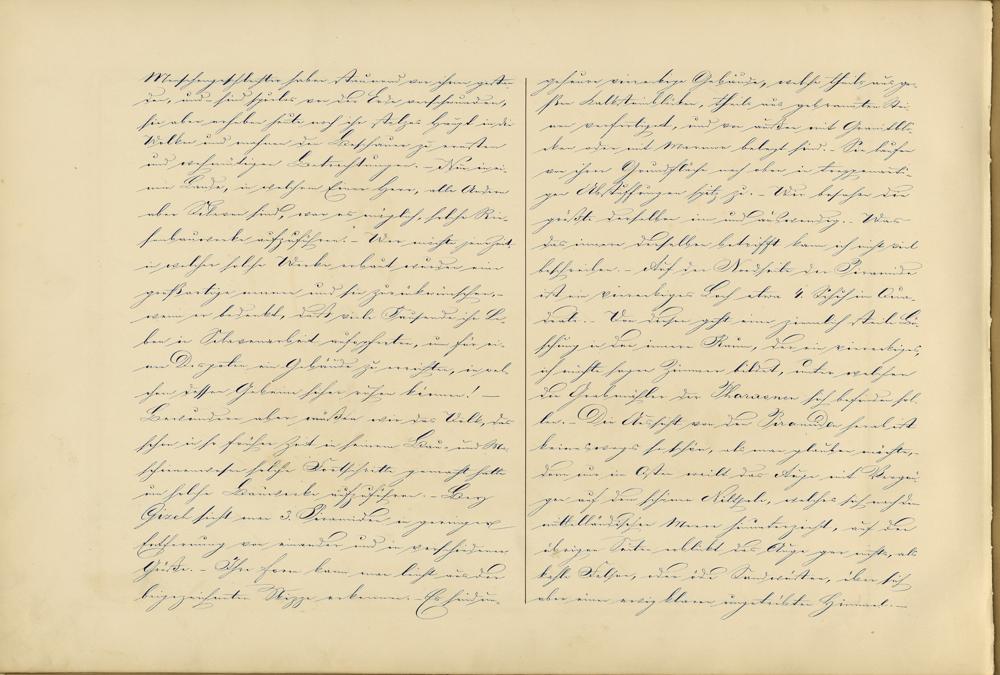 Menschengeschlechter haben staunend vor ihnen gestan-
den, und sind spurlos von der Erde verschwunden,
sie aber erheben heute noch ihr stolzes Haupt in die
Wolken und mahnen den Beschauer zu ernsten
und wehmütigen Betrachtungen. – Nur in ei-
nem Lande, in welchem Einer Herr, alle Andern
aber Sclaven sind, war es möglich solche Rie-
senbauwerke aufzuführen. – Wer möchte jene Zeit,
in welcher solche Werke erbaut wurden eine
großartige nennen und sie zurückwünschen, –
wenn er bedenkt, daß viele Tausende ihr Le-
ben in Sclavenarbeit aufopferten, um für ei-
nen Despoten ein Gebäude zu errichten, in wel-
chem dessen Gebeine sicher ruhen können! –
Bewundern aber müßen wir das Volk, das
schon in so früher Zeit in seinem Bau- und Ma-
schinenwesen solche Fortschritte gemacht hatte
um solche Bauwerke aufzuführen. – Bey
Gizeh sieht man 3. Piramiden in geringer
Entfernung von einander und in verschiedener
Größe. – Ihre Form kann man leicht aus der
beygezeichneten Skizze erkennen. – Es sind un-
geheure viereckige Gebäude, welche theils aus gro-
ßen Kalksteinblöcken, theils aus gebrannten Stei-
nen verfertiget, und von außen mit Granitblö-
cken oder mit Marmor belegt sind. – Sie laufen
von ihrer Grundfläche nach oben in treppenarti-
gen Abstuffungen spitz zu. – Wir besahen die
größte derselben in- und auswendig. – Was
das innere derselben betrifft kann ich nicht viel
beschreiben. – Auf der Nordseite der Piramide
ist ein viereckiges Loch etwa 4. Schuh im Qua-
drate. – Von diesem geht eine ziemlich steile Bö-
schung in den inneren Raum, der ein viereckiges,
ich möchte sagen Zimmer bildet, unter welchem
die Grabmähler der Pharaonen sich befinden sol-
len. – Die Aussicht von der Piramide herab ist
keineswegs so schön, als man glauben möchte, –
denn nur im Osten weilt das Auge mit Vergnü-
gen auf dem schönen Nilthale, welches sich nach dem
mittelländischen Meere hinunterzieht, auf den
übrigen Seiten erblickt das Auge gar nichts, als
kahle Felsen, oder öde Sandwüsten, über sich
aber einen ewig klaren ungetrübten Himmel. –